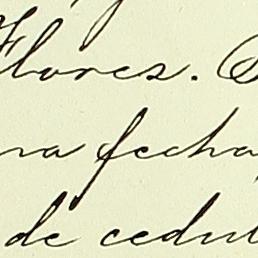 Flores.
na fecha
de cedul